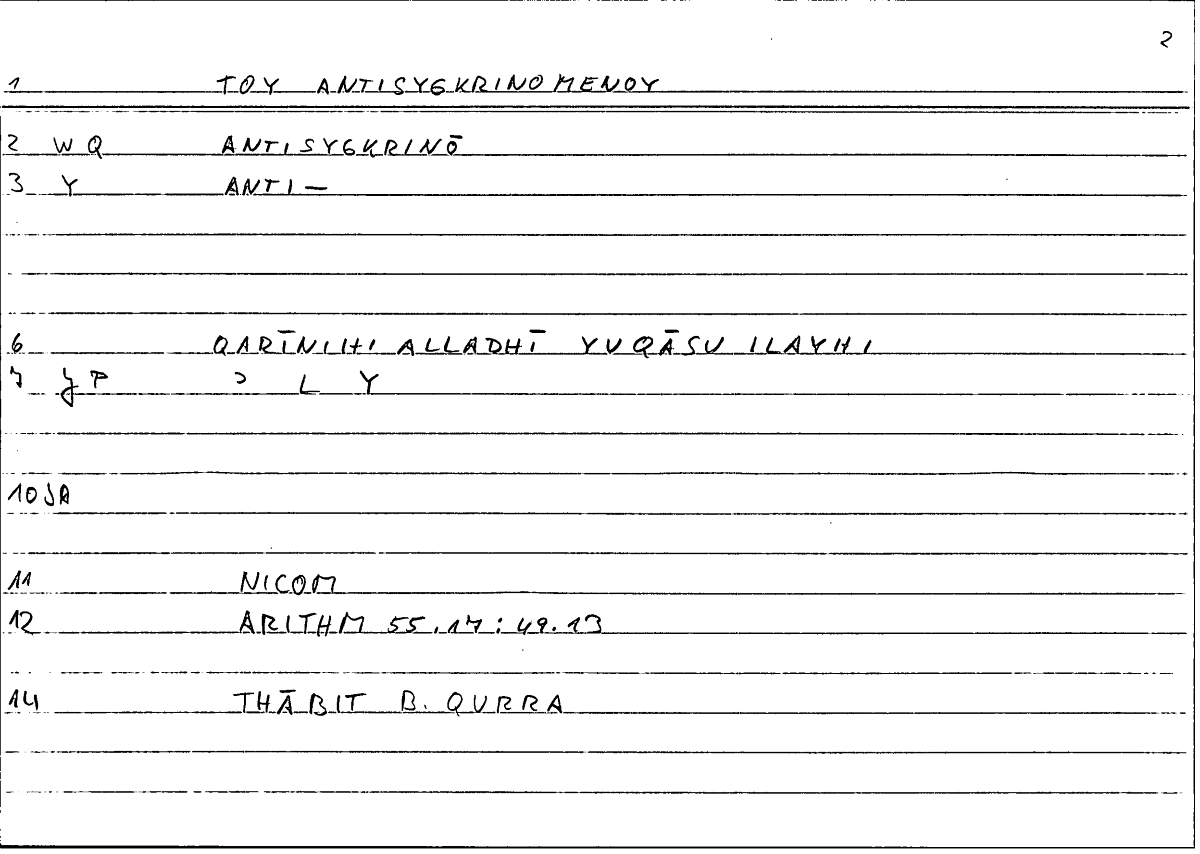 2
1 TOY ANTISYGKRINOMENOY
2 WQ ANTISYGKRINŌ
3 Y ANTI—
6 QARĪNIHI ALLADHĪ YUQĀSU ILAYHI
7 P ɔ L Y
10 JA
11 NICOM
12 ARITHM 55.17:49.13
14 THĀBIT B. QURRA